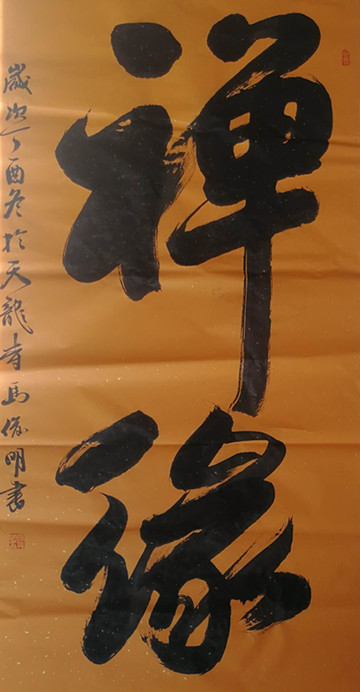 禅缘
歲次丁酉冬於天龍寺馬俊明書